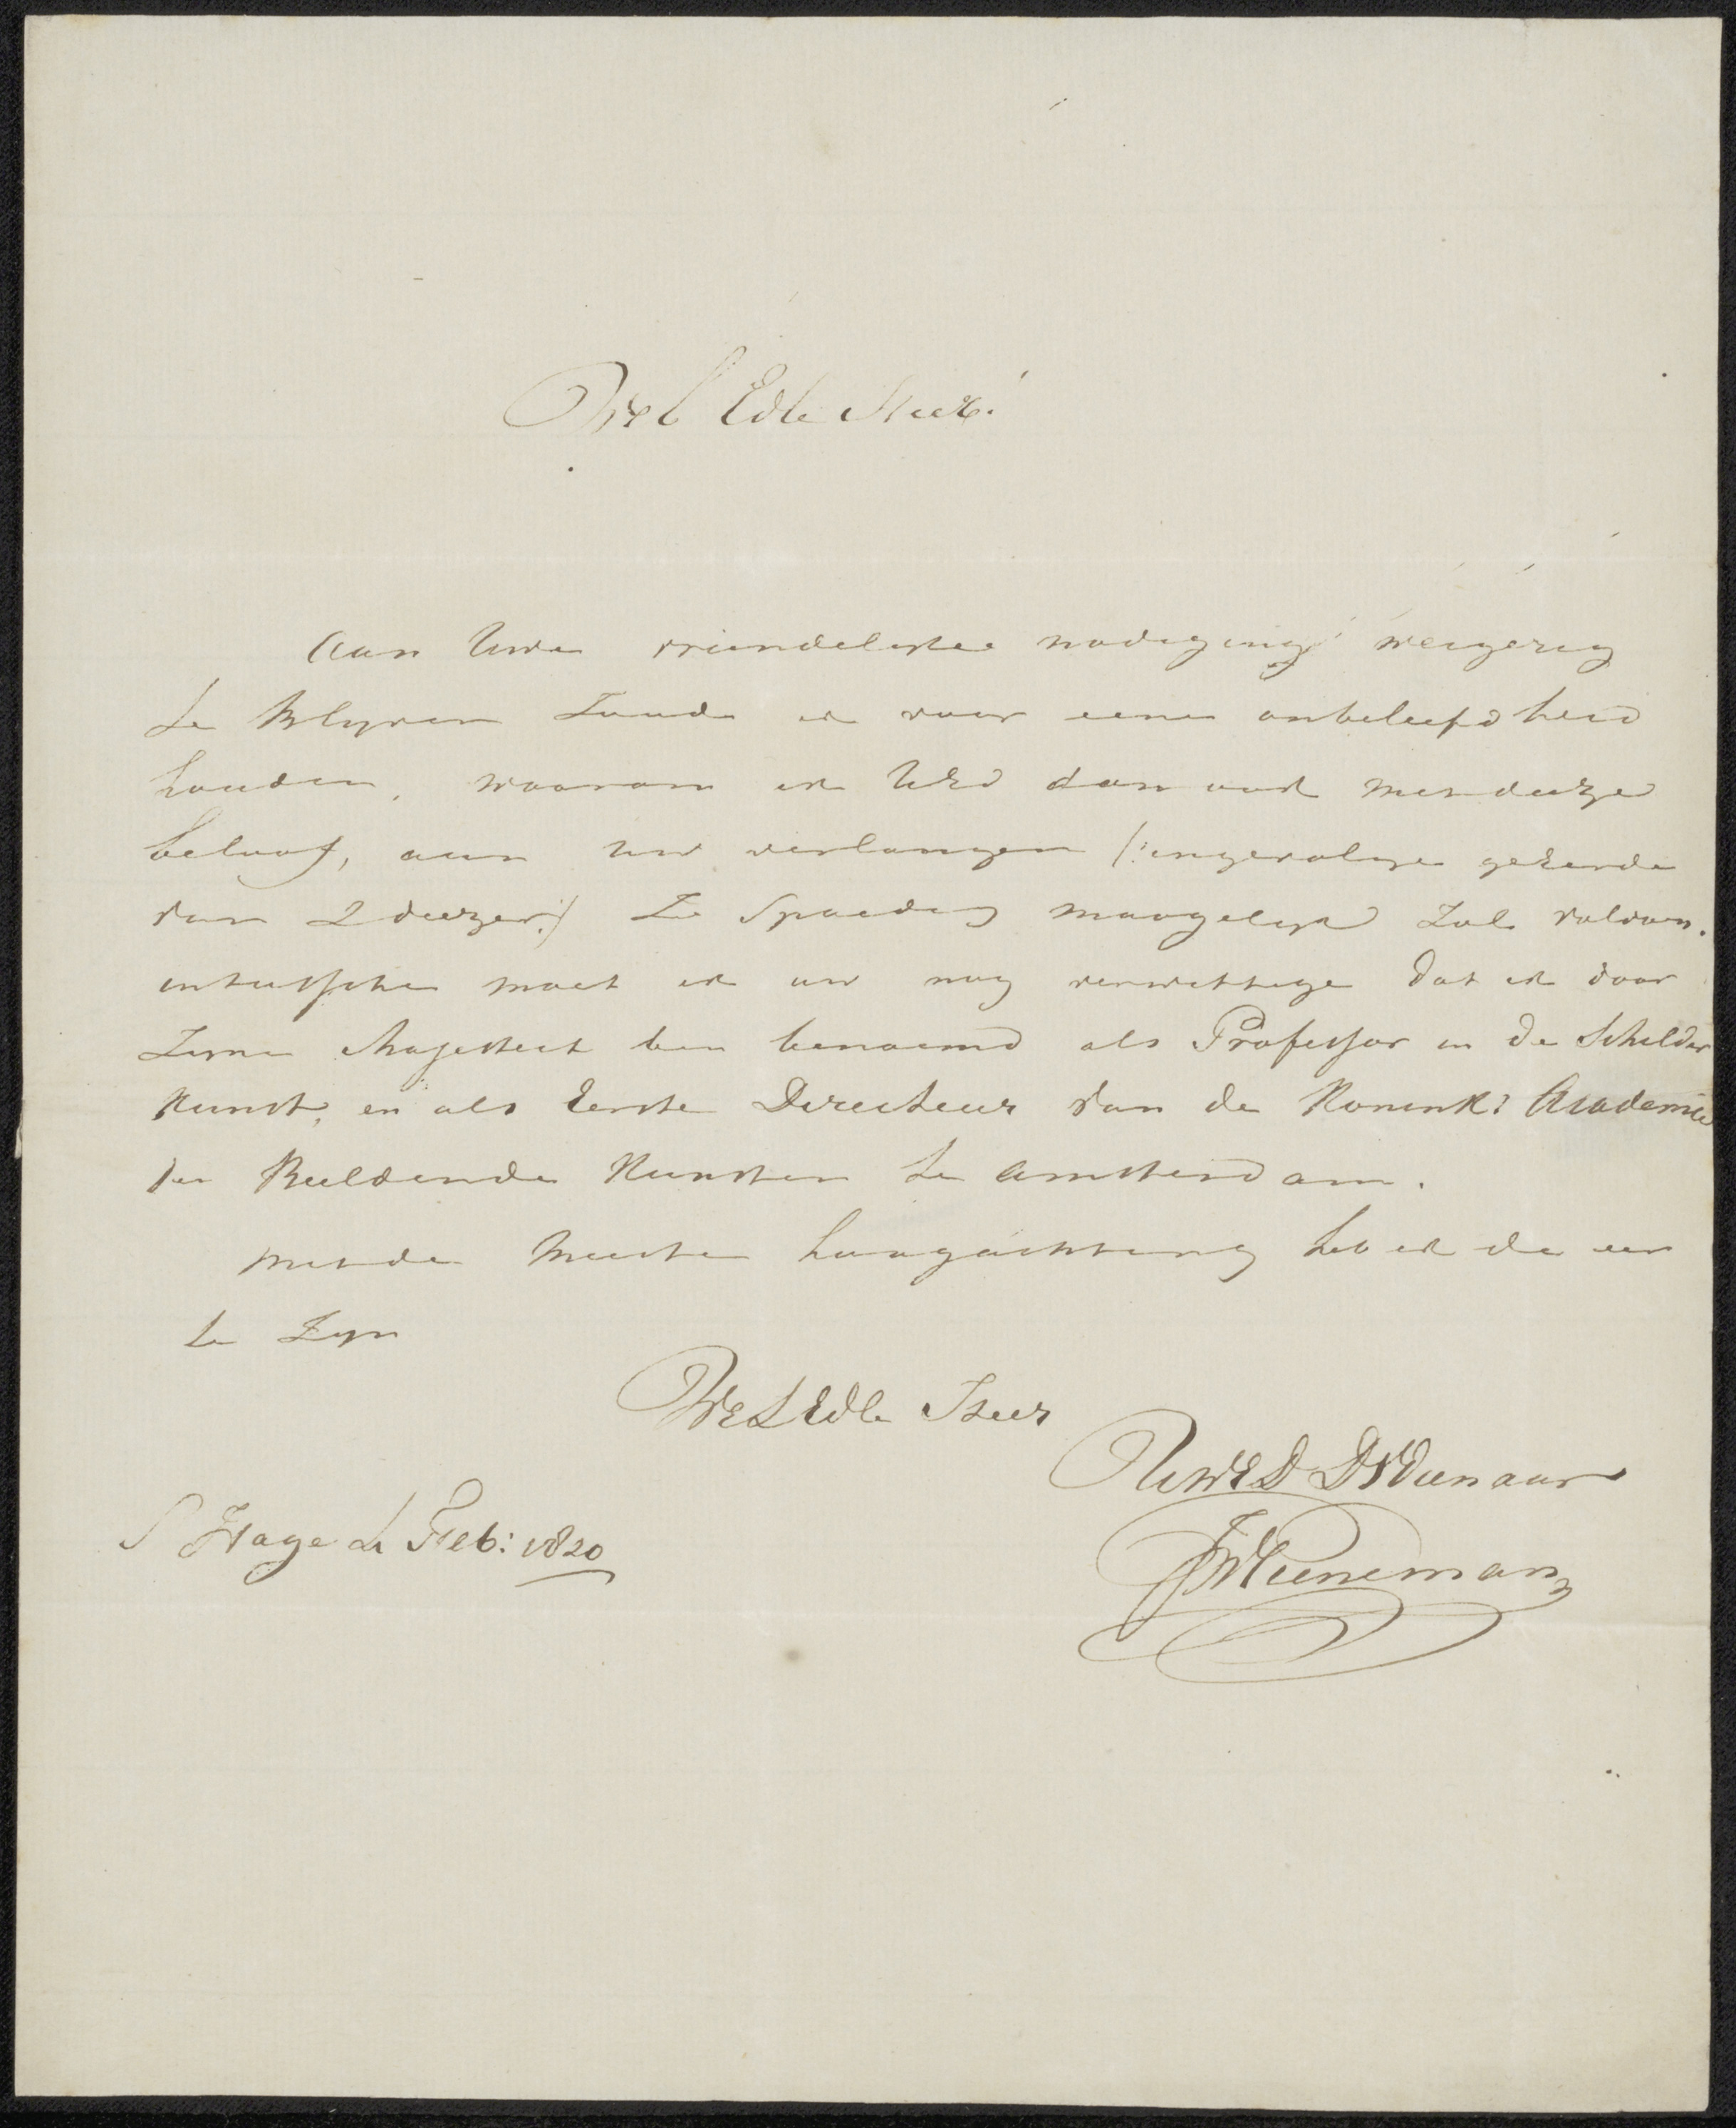 Wel Edle Heer.
Aan Uwe vriendelyke nodiging weigerig
te Blyven Zoude ik voor eene onbeleefdheid
houden, waarom ik UEd dan ook mits deeze
beloof, aan uw verlangen (: ingevolge geËerde
van 2 deezer :) Zo Spoedig moogelyk Zal voldoen.
intusschen moet ik uw nog verwittige dat ik door
Zyne Majesteit ben benoemd als Professor in de Schilder
Kunst, en als Eerste Directeur van de Koninkl: Academie
der Beeldende Kunsten te Amsterdam.
met de Meeste hoogachting heb ik de eer
te Zyn
WEL Edle Heer
UWED DWDienaar
S Hage Feb: 1820
JWPieneman